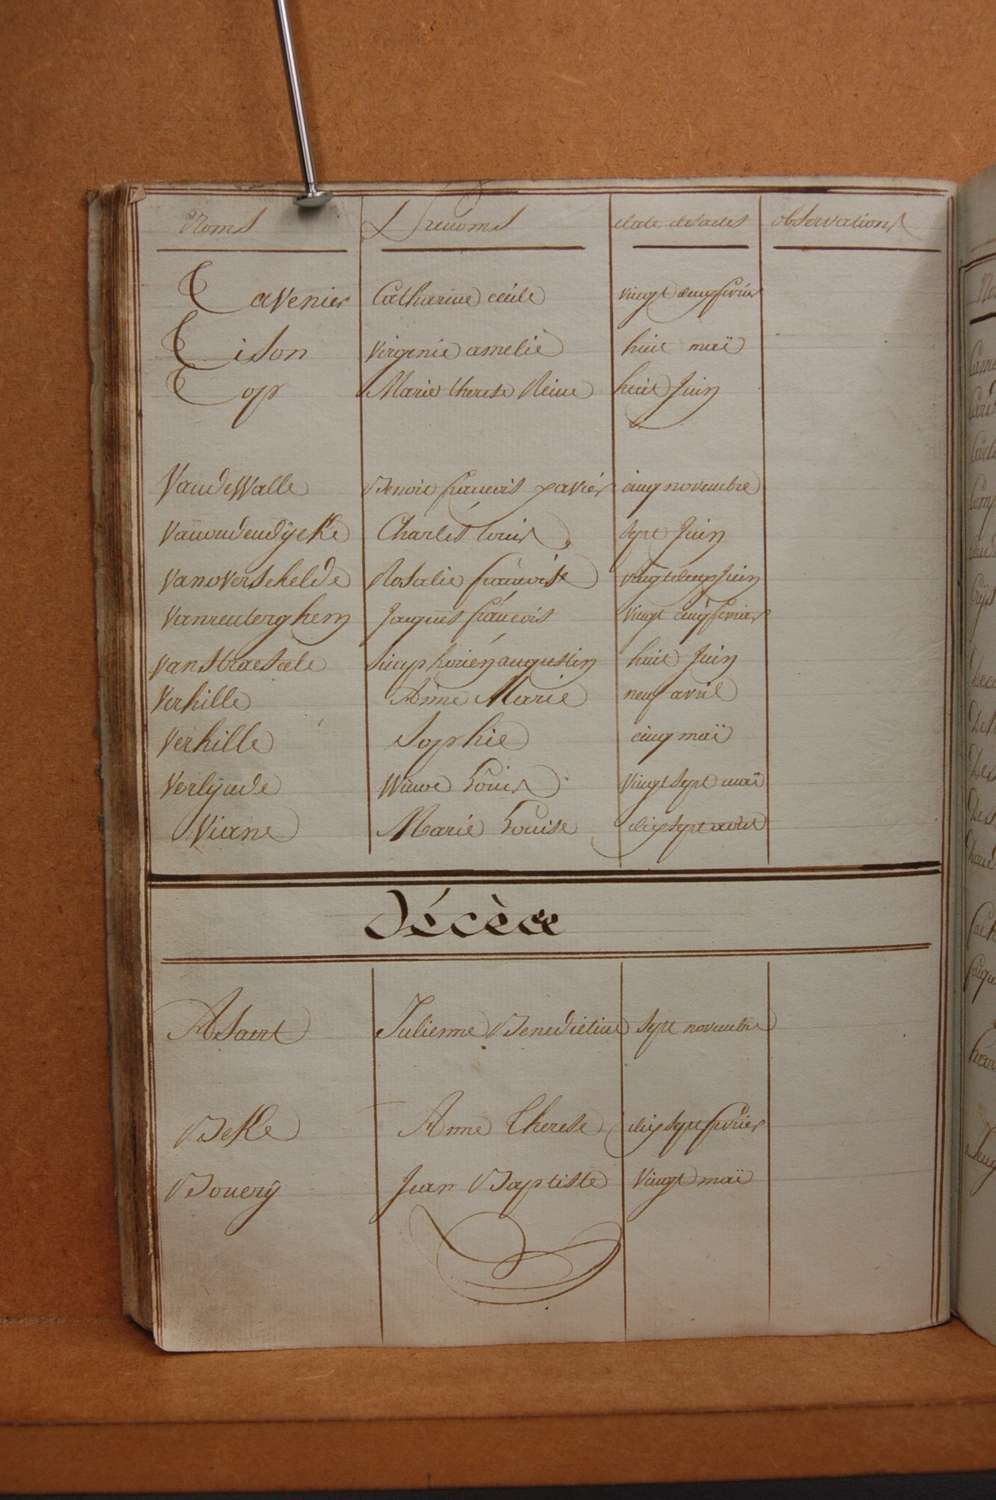 Noms Prenoms date des actes observations
Tavenier Catherine cecile vingt cinq fevrier
Tison Virgenie amelie huit maï
Top Marie therese Reine huit Juin
VandeWalle Benoit francois xavier cinq novembre
Vanoudendÿcke Charles Louis sept Juin
Vanoverschelde Rosalie francoise Juin
Vanreuterghem Jacques francois vingt cinq fevrier
Vanstraesele Simphorien augustin huit Juin
Verhille Anne Marie neuf avril
Verhille Sophie cinq maï
Verlynde Louis vingt sept maï
Viane Marie Louise dix sept avril
Décès
Asaert Julienne Benedictine sept novembre
Beke Anne therese dix sept fevrier
Bouerÿ Jean Baptiste vingt maï